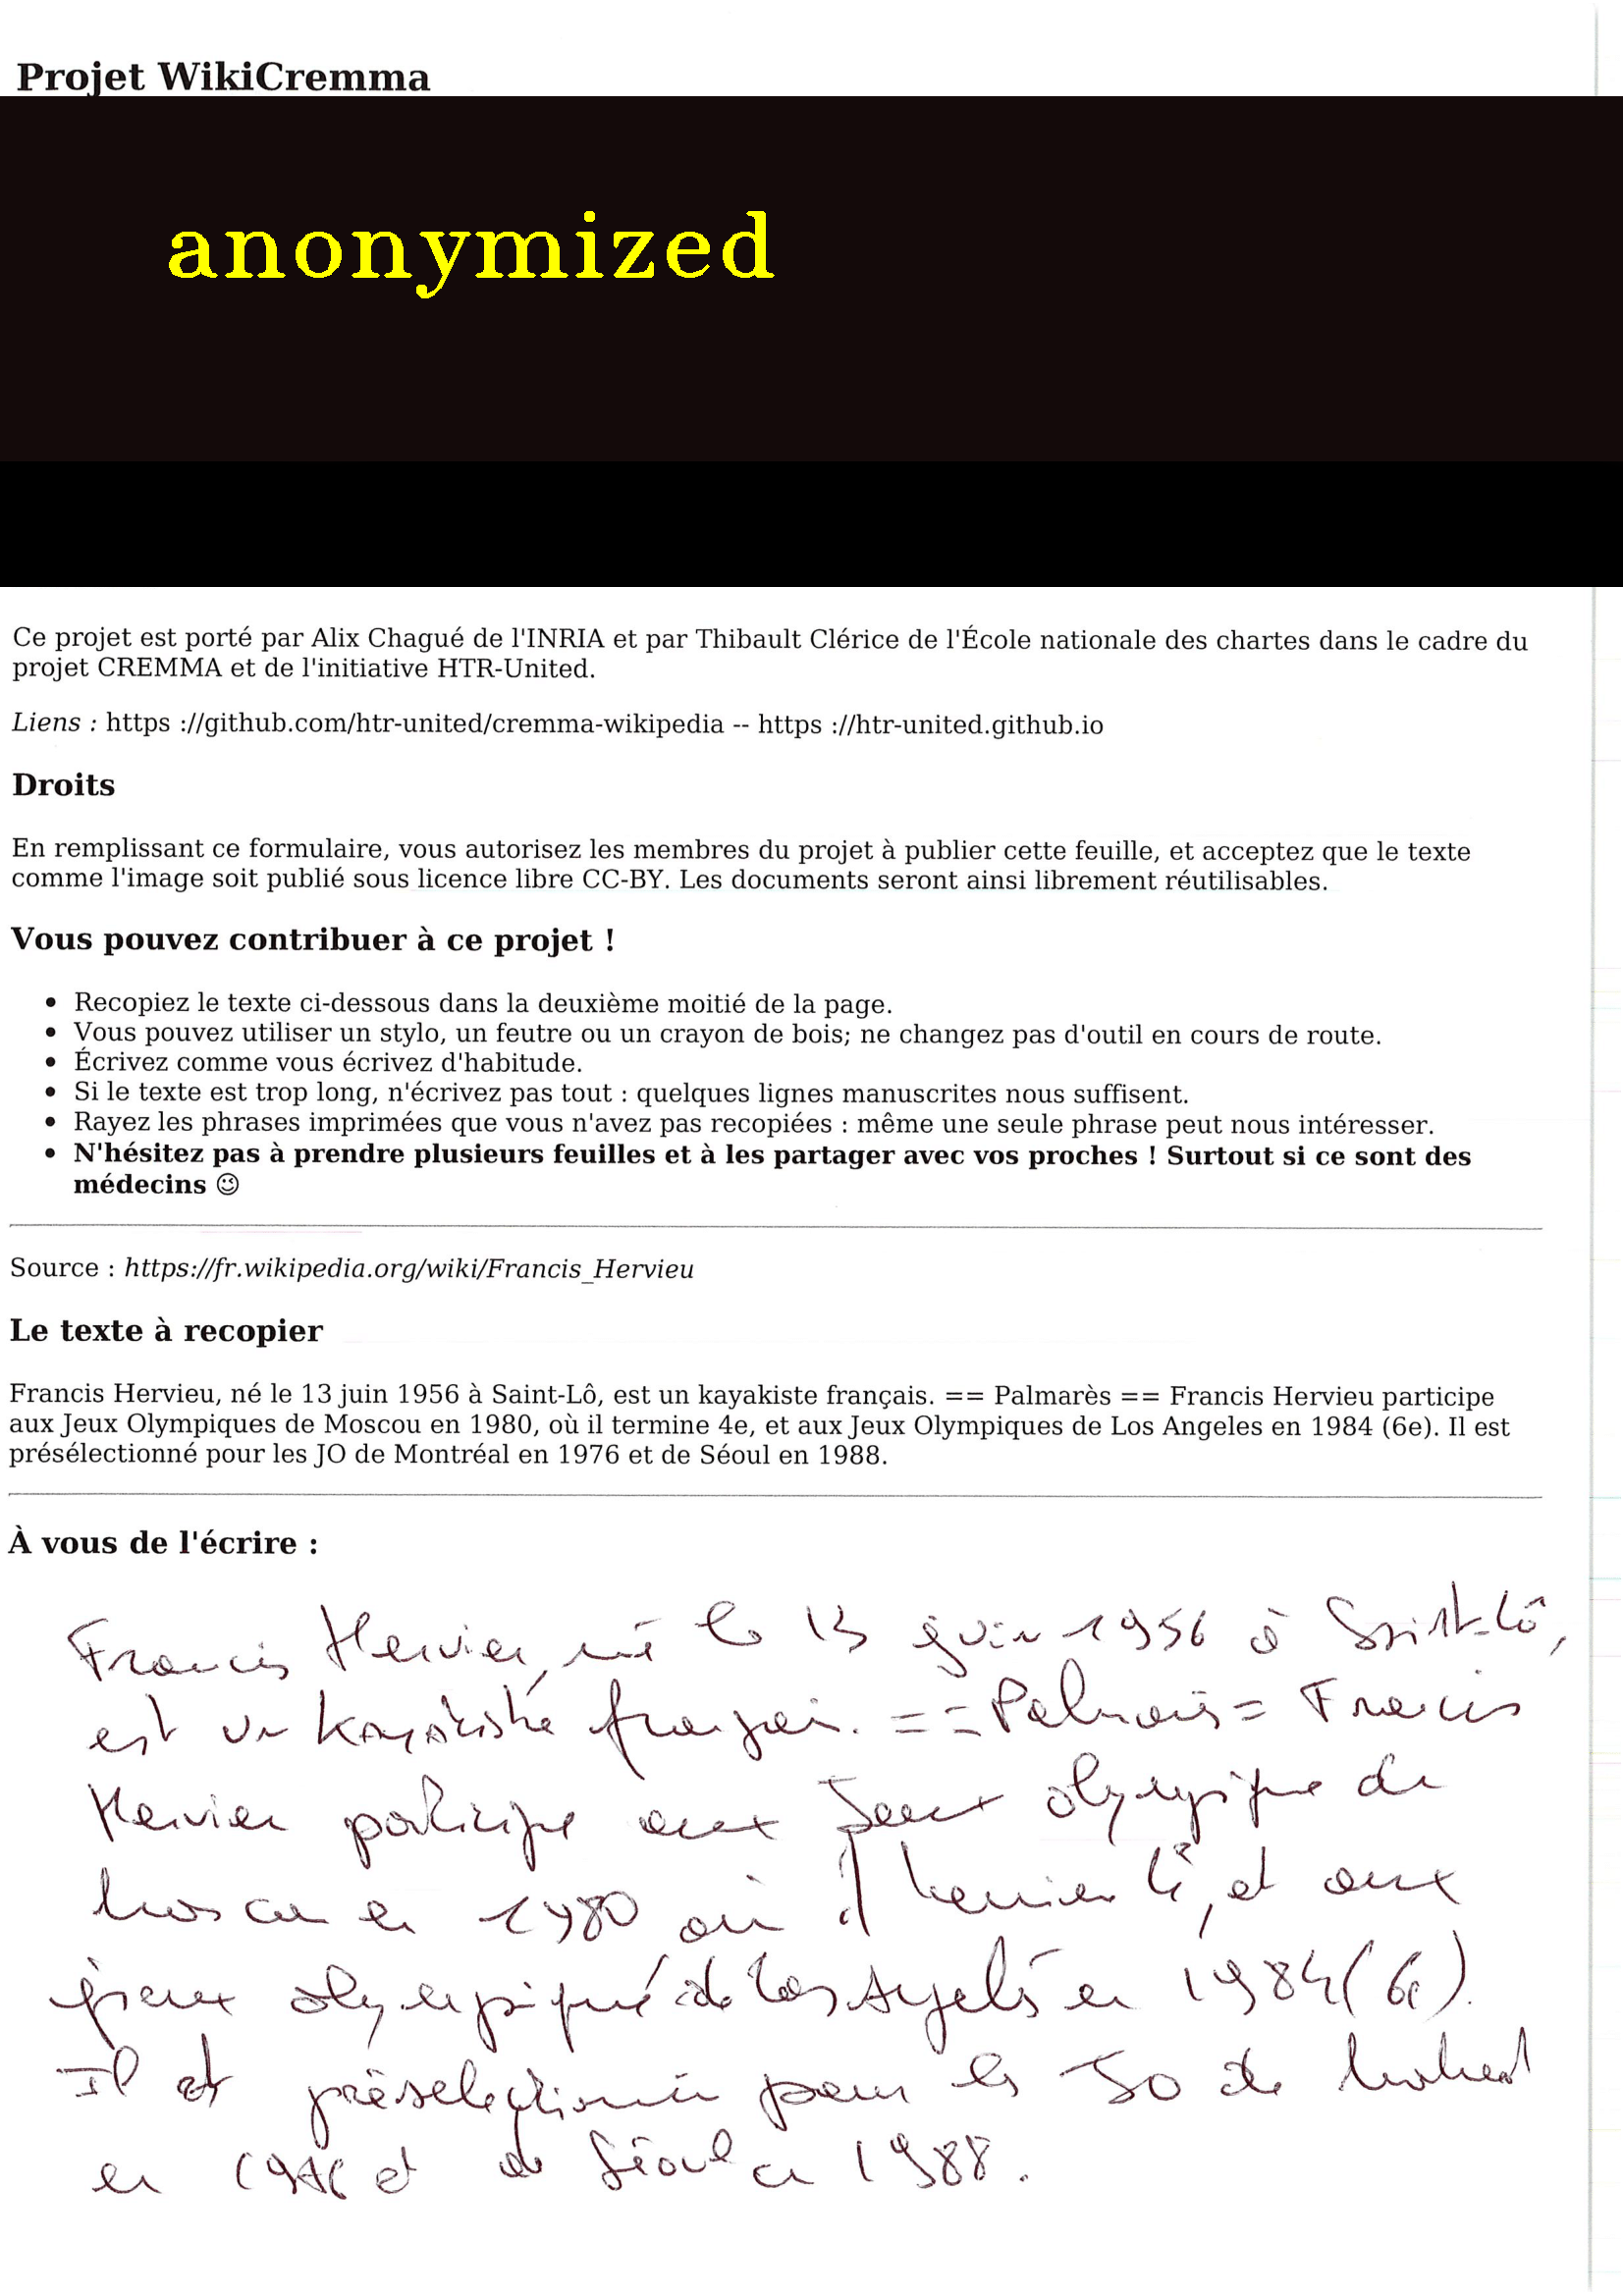 Projet WikiCremma
anonymized
Ce projet est porté par Alix Chagué de l'INRIA et par Thibault Clérice de l'École nationale des chartes dans le cadre du
projet CREMMA et de l'initiative HTR-United.
Liens : https ://github.com/htr-united/cremma-wikipedia -- https ://htr-united.github.io
Droits
En remplissant ce formulaire, vous autorisez les membres du projet à publier cette feuille, et acceptez que le texte
comme l'image soit publié sous licence libre CC-BY. Les documents seront ainsi librement réutilisables.
Vous pouvez contribuer à ce projet !
• Recopiez le texte ci-dessous dans la deuxième moitié de la page.
• Vous pouvez utiliser un stylo, un feutre ou un crayon de bois; ne changez pas d'outil en cours de route.
• Écrivez comme vous écrivez d'habitude.
• Si le texte est trop long, n'écrivez pas tout : quelques lignes manuscrites nous suffisent.
• Rayez les phrases imprimées que vous n'avez pas recopiées : même une seule phrase peut nous intéresser.
• N'hésitez pas à prendre plusieurs feuilles et à les partager avec vos proches ! Surtout si ce sont des
médecins 😉
Source : https://fr.wikipedia.org/wiki/Francis_Hervieu
Le texte à recopier
Francis Hervieu, né le 13 juin 1956 à Saint-Lô, est un kayakiste français. == Palmarès == Francis Hervieu participe
aux Jeux Olympiques de Moscou en 1980, où il termine 4e, et aux Jeux Olympiques de Los Angeles en 1984 (6e). Il est
présélectionné pour les JO de Montréal en 1976 et de Séoul en 1988.
À vous de l'écrire :
Francis Hervieu, né le 13 juin 1956 à Saint-Lô,
est un kayakiste français. == Palmarès = Francis
Hervieu participe aux Jeux olympique de
Moscou en 1980 où il termine 4e, et aux
jeux olympique de Los Angeles en 1984 (6e).
Il est présélectionné pour les JO de Montreal
en 1976 et de Séoul en 1988.